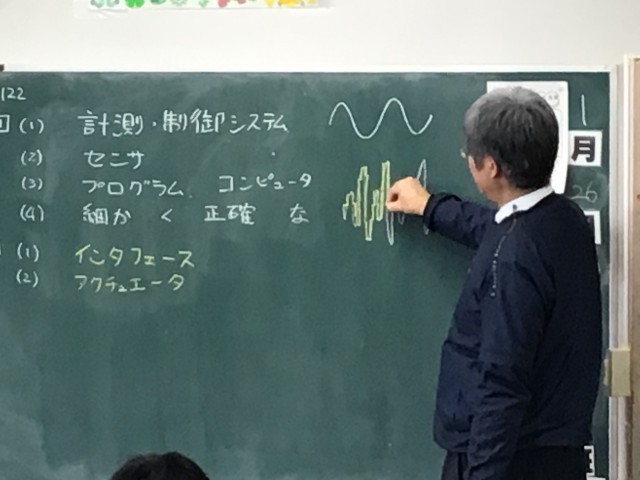 122
(1) 計測・制御システム
(2) センサ
(3) プログラム、コンピュータ
(4) 細かく正確な
(1) インタフェース
(2) アクチュエータ
1
月
26